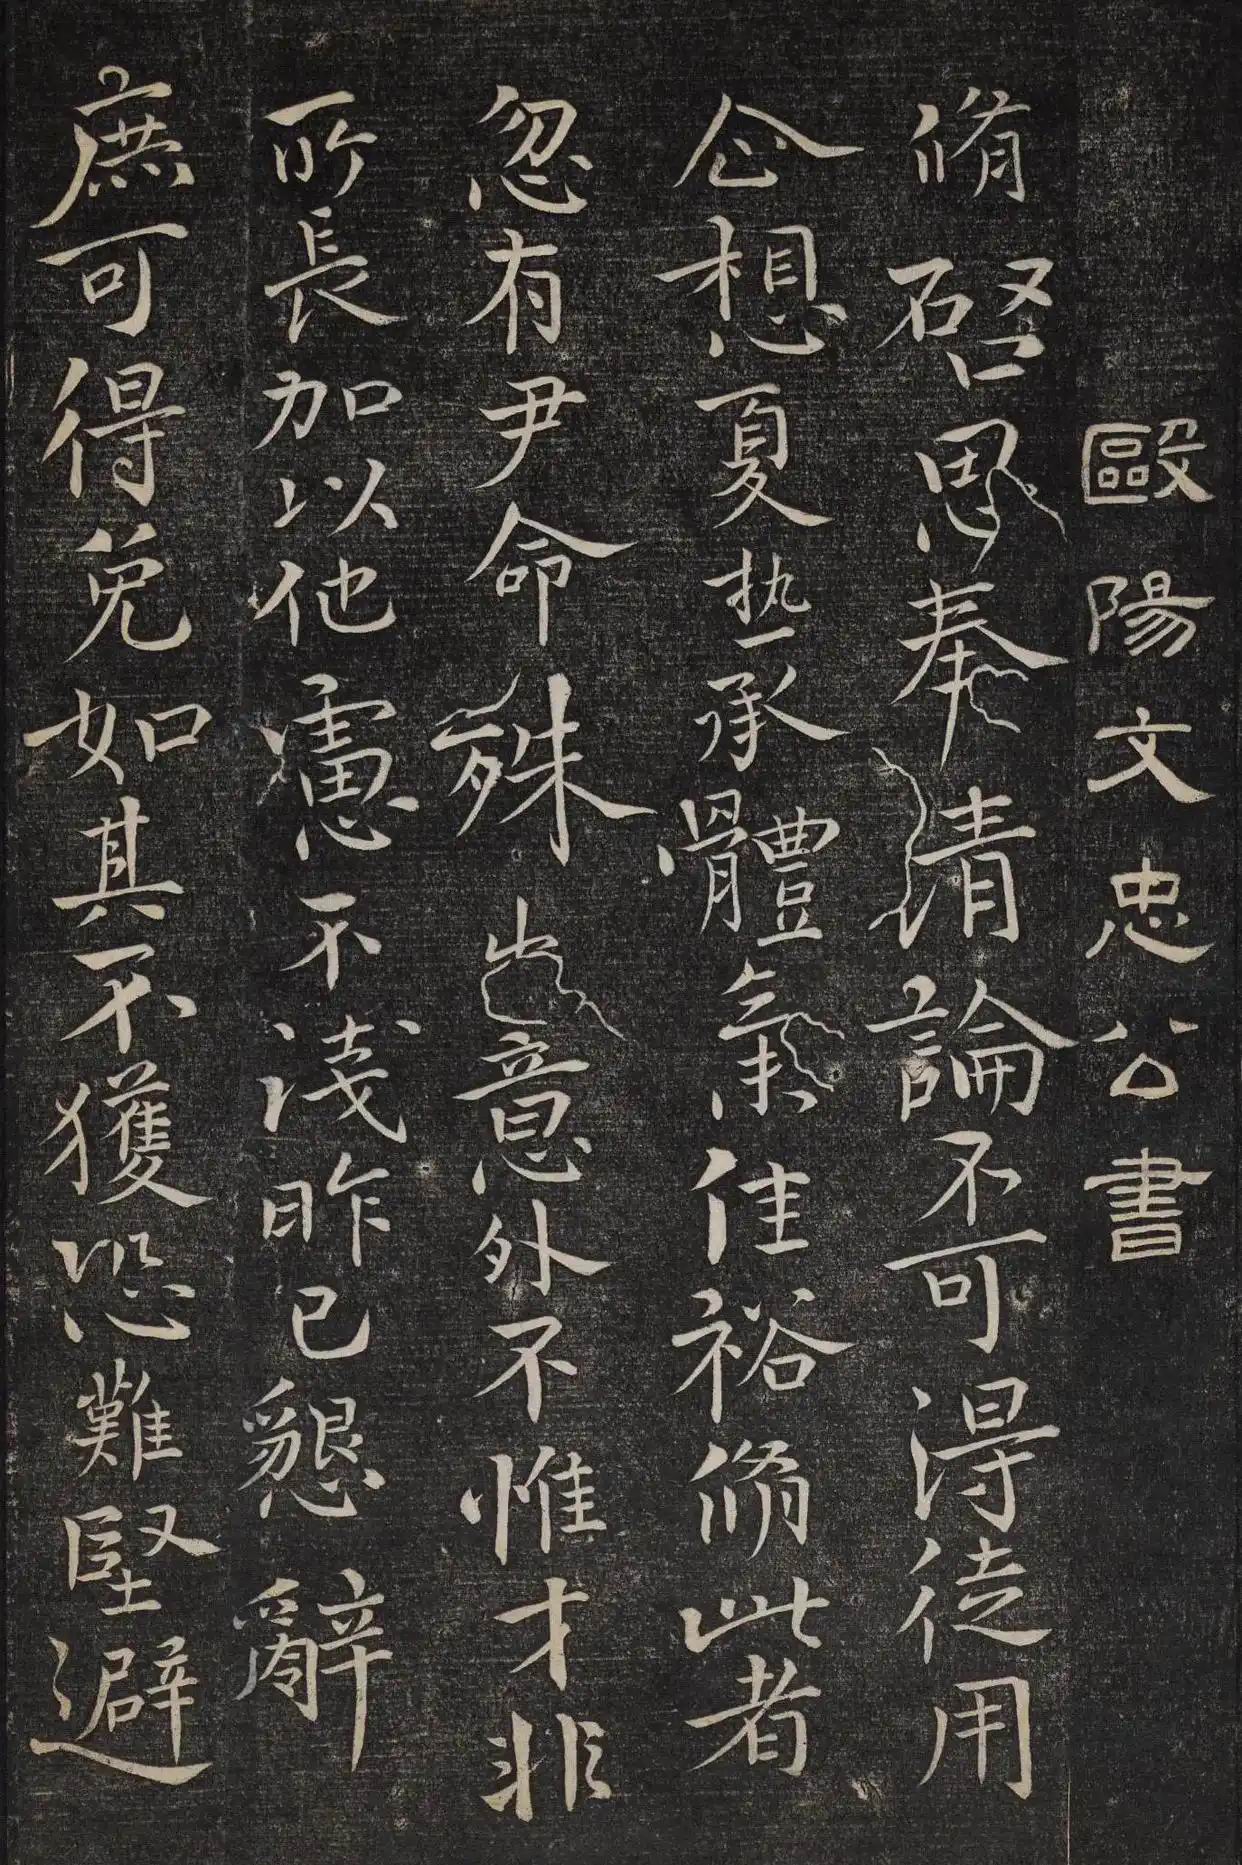 歐陽文忠公書
脩啓思奉清論不可得徒用
企想夏热承體氣佳裕脩此者
忽有尹命殊出意外不惟才非
所長加以他慮不淺昨已懇辭
庶可得免如其不獲恐難堅避